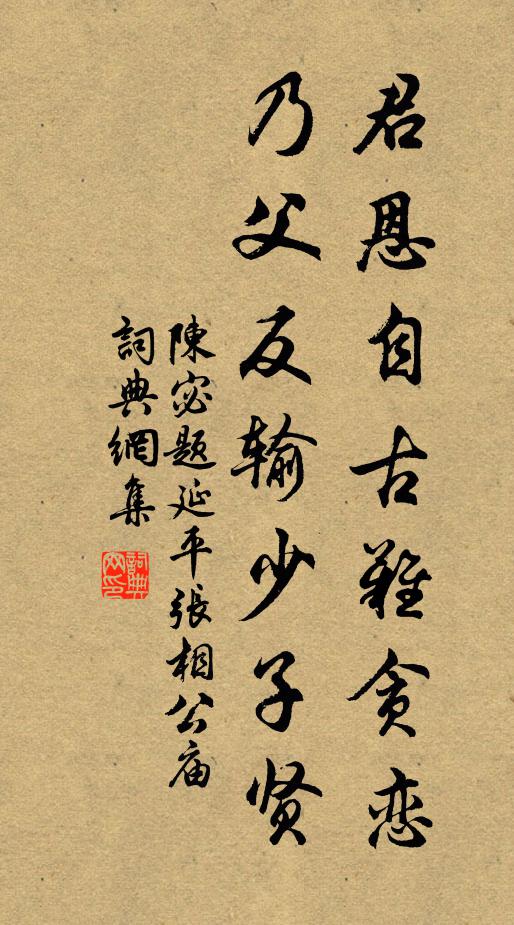 君恩自古難贪恋
乃父反输少子贤
陳宓题延平張相公庙
詞典網集
詞典网印